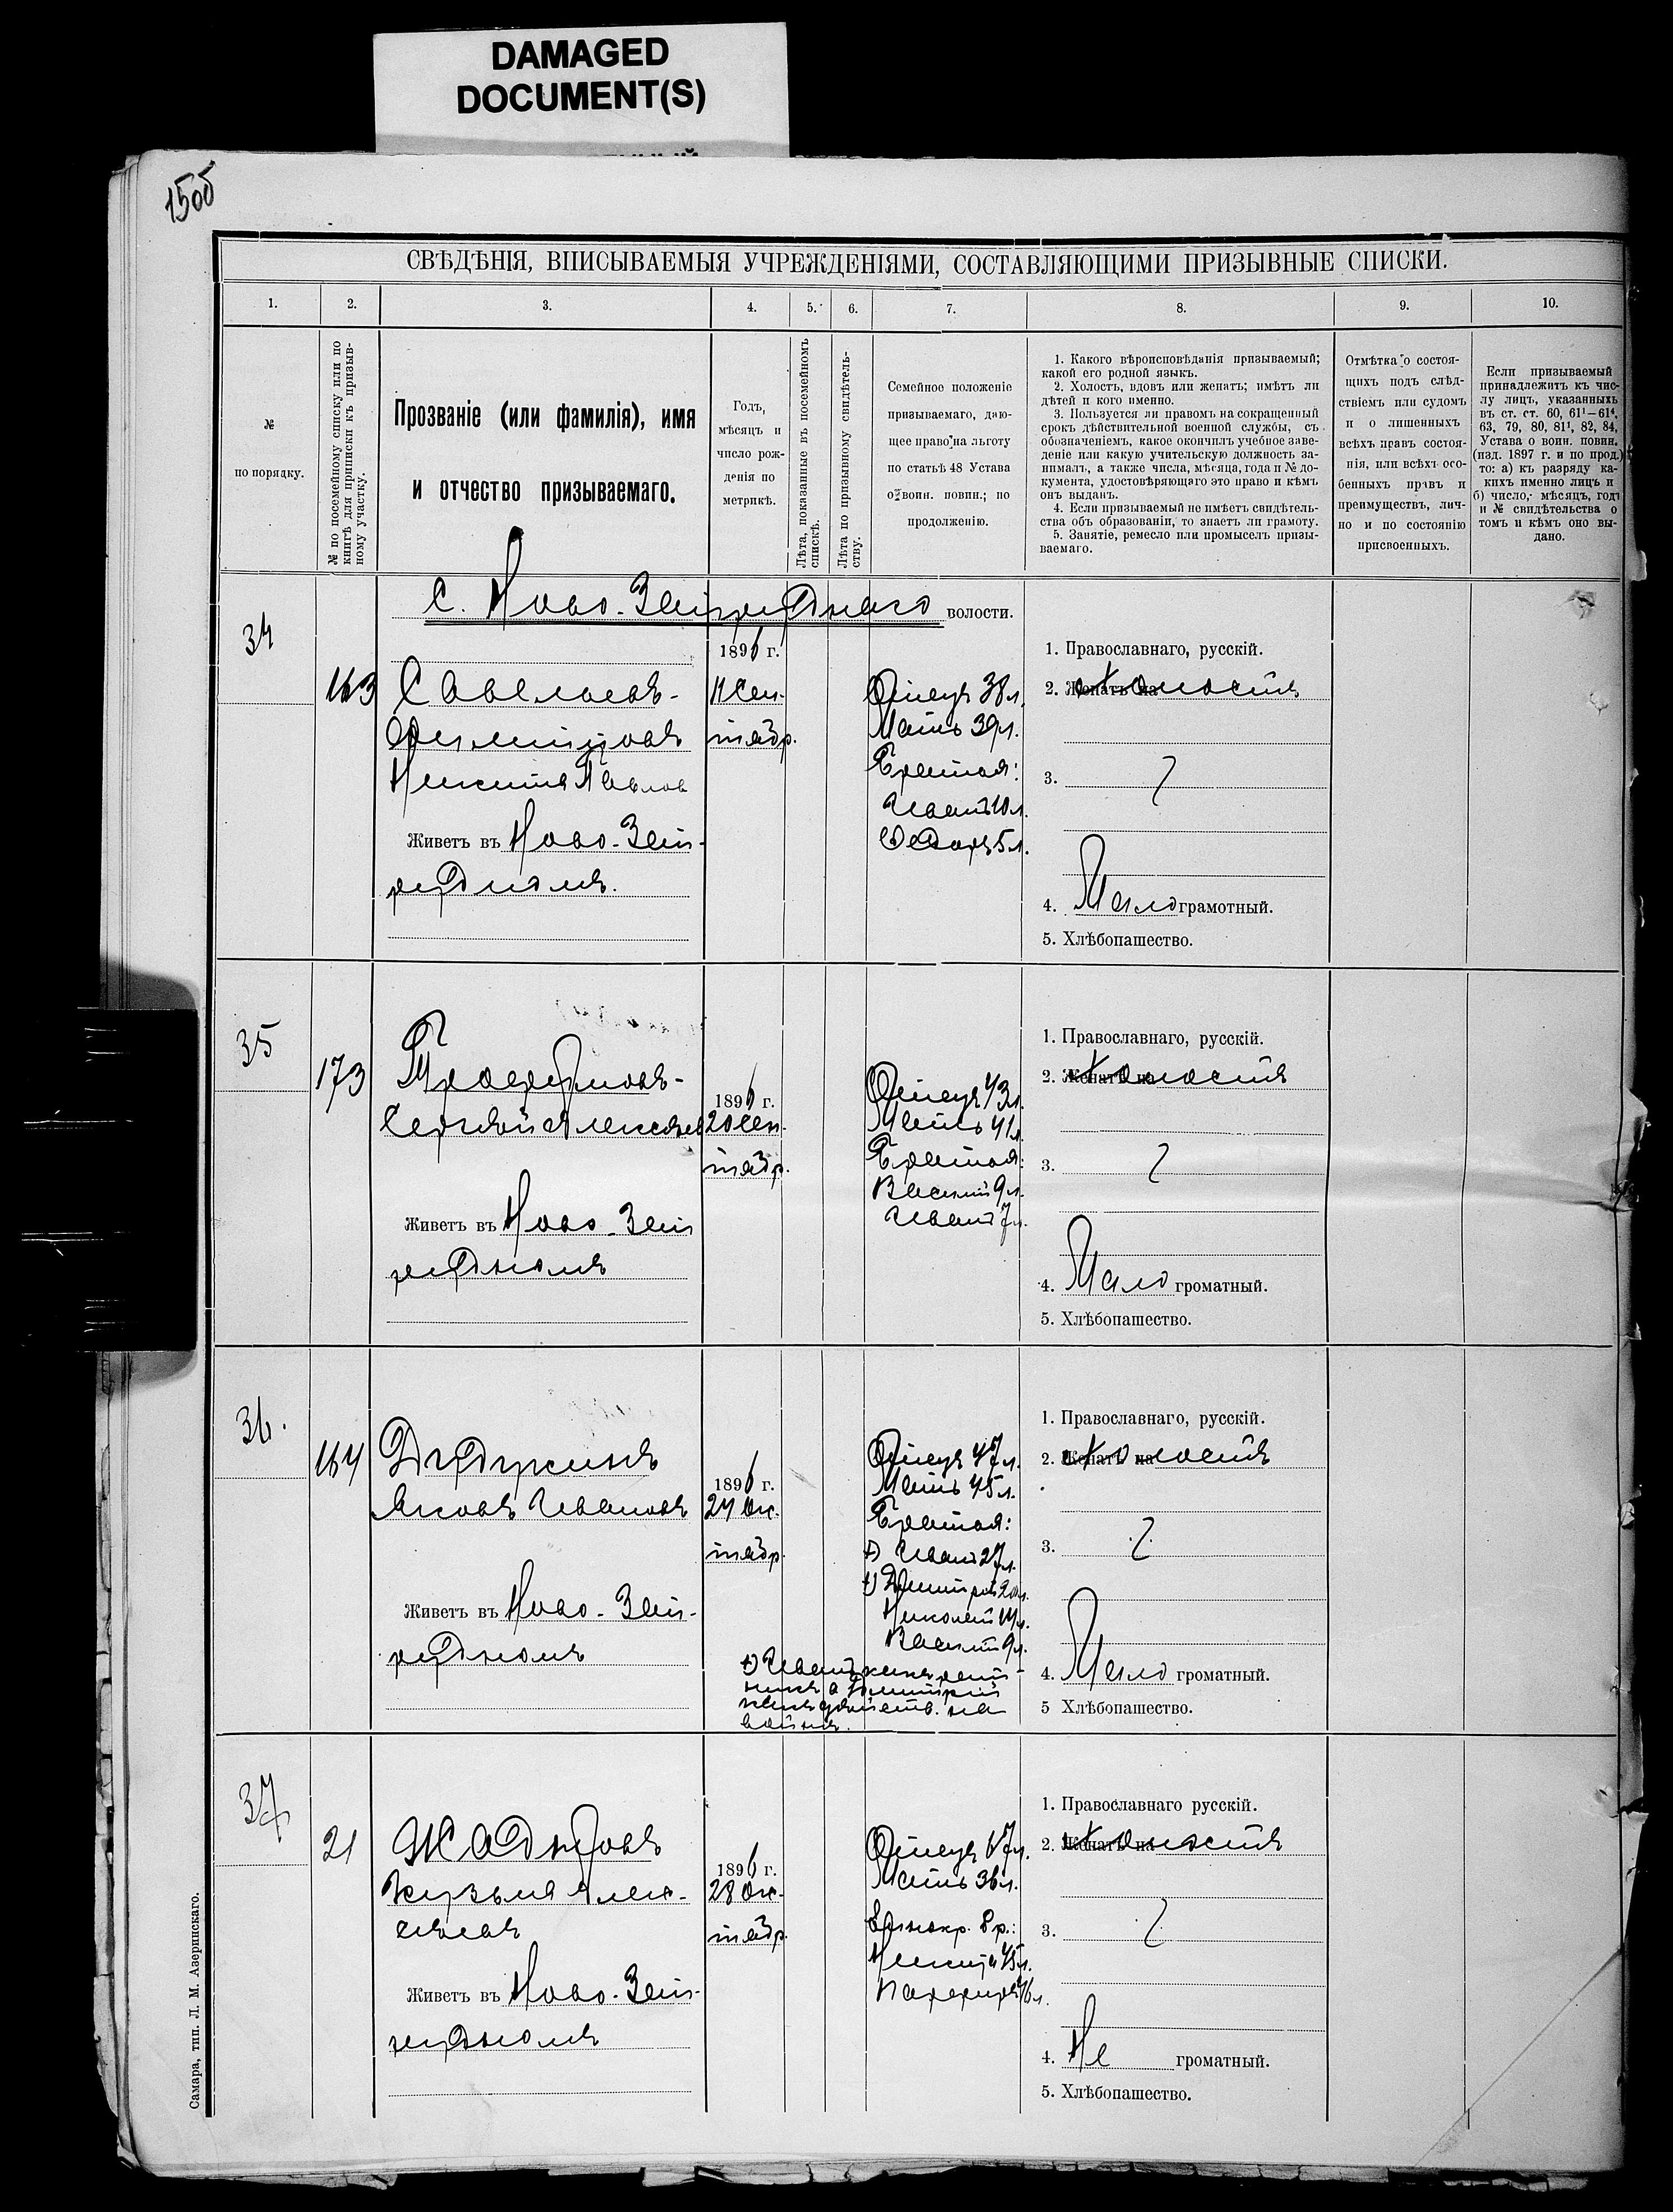 DAMAGED
DOCUMENT(S)
150об
СВѢДѢНІЯ, ВПИСЫВАЕМЫЯ УЧРЕЖДЕНІЯМИ, СОСТАВЛЯЮЩИМИ ПРИЗЫВНЫЕ СПИСКИ.
1. 2. 3. 4. 5. 6. 7. 8. 9. 10.
№
по порядку.
№ по посемейному списку или по
книгѣ для приписки къ призыв-
ному участку.
Прозваніе (или фамилія), имя
и отчество призываемаго.
Годъ,
мѣсяцъ и
число рож-
денія по
метрикѣ.
Лѣта, показанные въ посемейномъ
спискѣ.
Лѣта по призывному свидѣтель-
ству.
Семейное положеніе
призываемаго, даю-
щее право на льготу
по статьѣ 48 Устава
о воин. повин.; по
продолженію.
1. Какого вѣроисповѣданія призываемый;
какой его родной языкъ.
2. Холостъ, вдовъ или женатъ; имѣтъ ли
дѣтей и кого именно.
3. Пользуется ли правомъ на сокращенный
срокъ дѣйствительной военной службы, съ
обозначеніемъ, какое окончилъ учебное заве-
деніе или какую учительскую должность за-
нималъ, а также числа, мѣсяца, года и № до-
кумента, удостовѣряющаго это право и кѣмъ
онъ выданъ.
4. Если призываемый не имѣетъ свидѣтель-
ства объ образованіи, то знаетъ ли грамоту.
5. Занятіе, ремесло или промыселъ призы-
ваемаго.
Отмѣтка о состоя-
щихъ подъ слѣд-
ствіемъ или судомъ
и о лишенныхъ
всѣхъ правъ состоя-
нія, или всѣхъ осо-
бенныхъ правъ и
преимуществъ, лич-
но и по состоянію
присвоенныхъ.
Если призываемый
принадлежитъ къ чис-
лу лицъ, указанныхъ
въ ст. ст. 60, 61¹—61⁴,
63, 79, 80, 81¹, 82, 84,
Устава о воин. повин.
(изд. 1897 г. и по прод.)
то: а) къ разряду ка-
кихъ именно лицъ и
б) число, мѣсяцъ, годъ
и № свидѣтельства о
томъ и кѣмъ оно вы-
дано.
С. Ново-
волости.
34
163
Савельевъ-
Никита Павлов
Живетъ въ Ново-
1896 г.
11 Сен-
тябр.
Отецъ 38 л.
Мать 39 л.
Братья:
Иванъ 10 л.
Ѳедоръ 5 л.
1. Православнаго, русскій.
2. Женатъ на Холостъ
3.
4. Малограмотный.
5. Хлѣбопашество.
35
173
Трофимовъ-
Сергѣй Алексѣев
Живетъ въ Ново-
1896 г.
20 Сен-
тябр.
Отецъ 43 л.
Мать 41 л.
Братья:
Василій 9 л.
Иванъ 7 л.
1. Православнаго, русскій.
2. Женатъ на Холостъ
3.
4. Мало громатный.
5. Хлѣбопашество.
36.
164
Дудукинъ
Яковъ Ивановъ
Живетъ въ Ново-
1896 г.
24 Ок-
тябр.
Отецъ 47 л.
Мать 45 л.
Братья:
+) Иванъ 27 л.
+) Дмитрій 20 л.
Николай 14 л.
Василій 9 л.
+) Иванъ
а Дмитрій
на
войнѣ.
1. Православнаго, русскій.
2. Женатъ на Холостъ
3.
4. Мало громатный.
5 Хлѣбопашество.
37
21
Жадновъ
Кузьма Алек-
сѣевъ
Живетъ въ Ново-
1896 г.
28 Ок-
тябр.
Отецъ 67 л.
Мать 36 л.
Единокр. бр.:
Никита 45 л.
Порфирій 46 л.
1. Православнаго русскій.
2. Женатъ на Холостъ
3.
4. Не громатный.
5. Хлѣбопашество.
Самара, тип. Л. М. Азеринскаго.